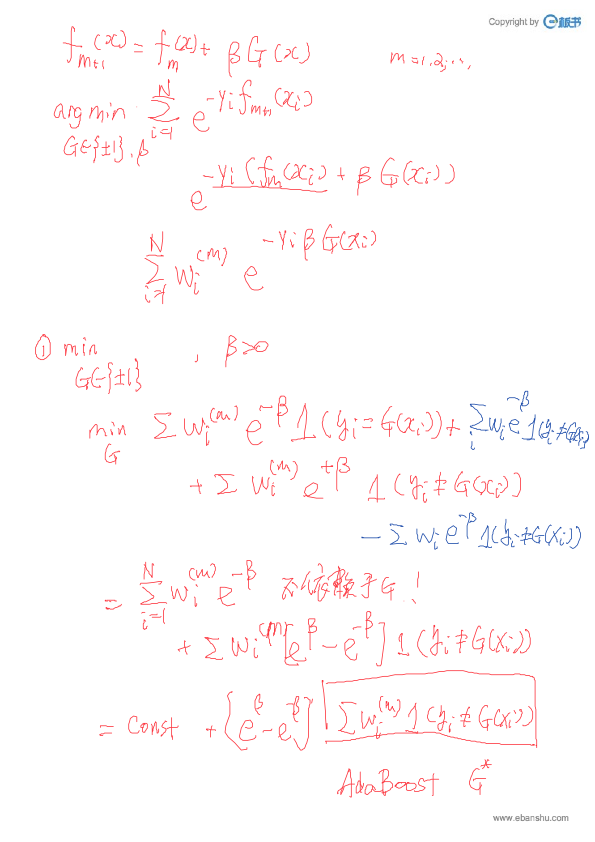 Copyright by e板书
f_{m+1}(x) = f_m(x) + β G(x)    m=1,2,…,
arg min_{G∈{±1}, β} Σ_{i=1}^{N} e^{-y_i f_{m+1}(x_i)}
e^{-y_i (f_m(x_i) + β G(x_i))}
Σ_{i=1}^{N} w_i^{(m)} e^{-y_i β G(x_i)}
① min_{G∈{±1}} , β>0
min_G Σ w_i^{(m)} e^{-β} 1(y_i = G(x_i)) + Σ_i w_i e^{-β} 1(y_i ≠ G(x_i))
+ Σ w_i^{(m)} e^{+β} 1(y_i ≠ G(x_i))
- Σ w_i e^{-β} 1(y_i ≠ G(x_i))
= Σ_{i=1}^{N} w_i^{(m)} e^{-β} 不依赖于G!
+ Σ w_i^{(m)} [e^β - e^{-β}] 1(y_i ≠ G(x_i))
= Const + {e^β - e^{-β}} Σ w_i^{(m)} 1(y_i ≠ G(x_i))
AdaBoost G*
www.ebanshu.com